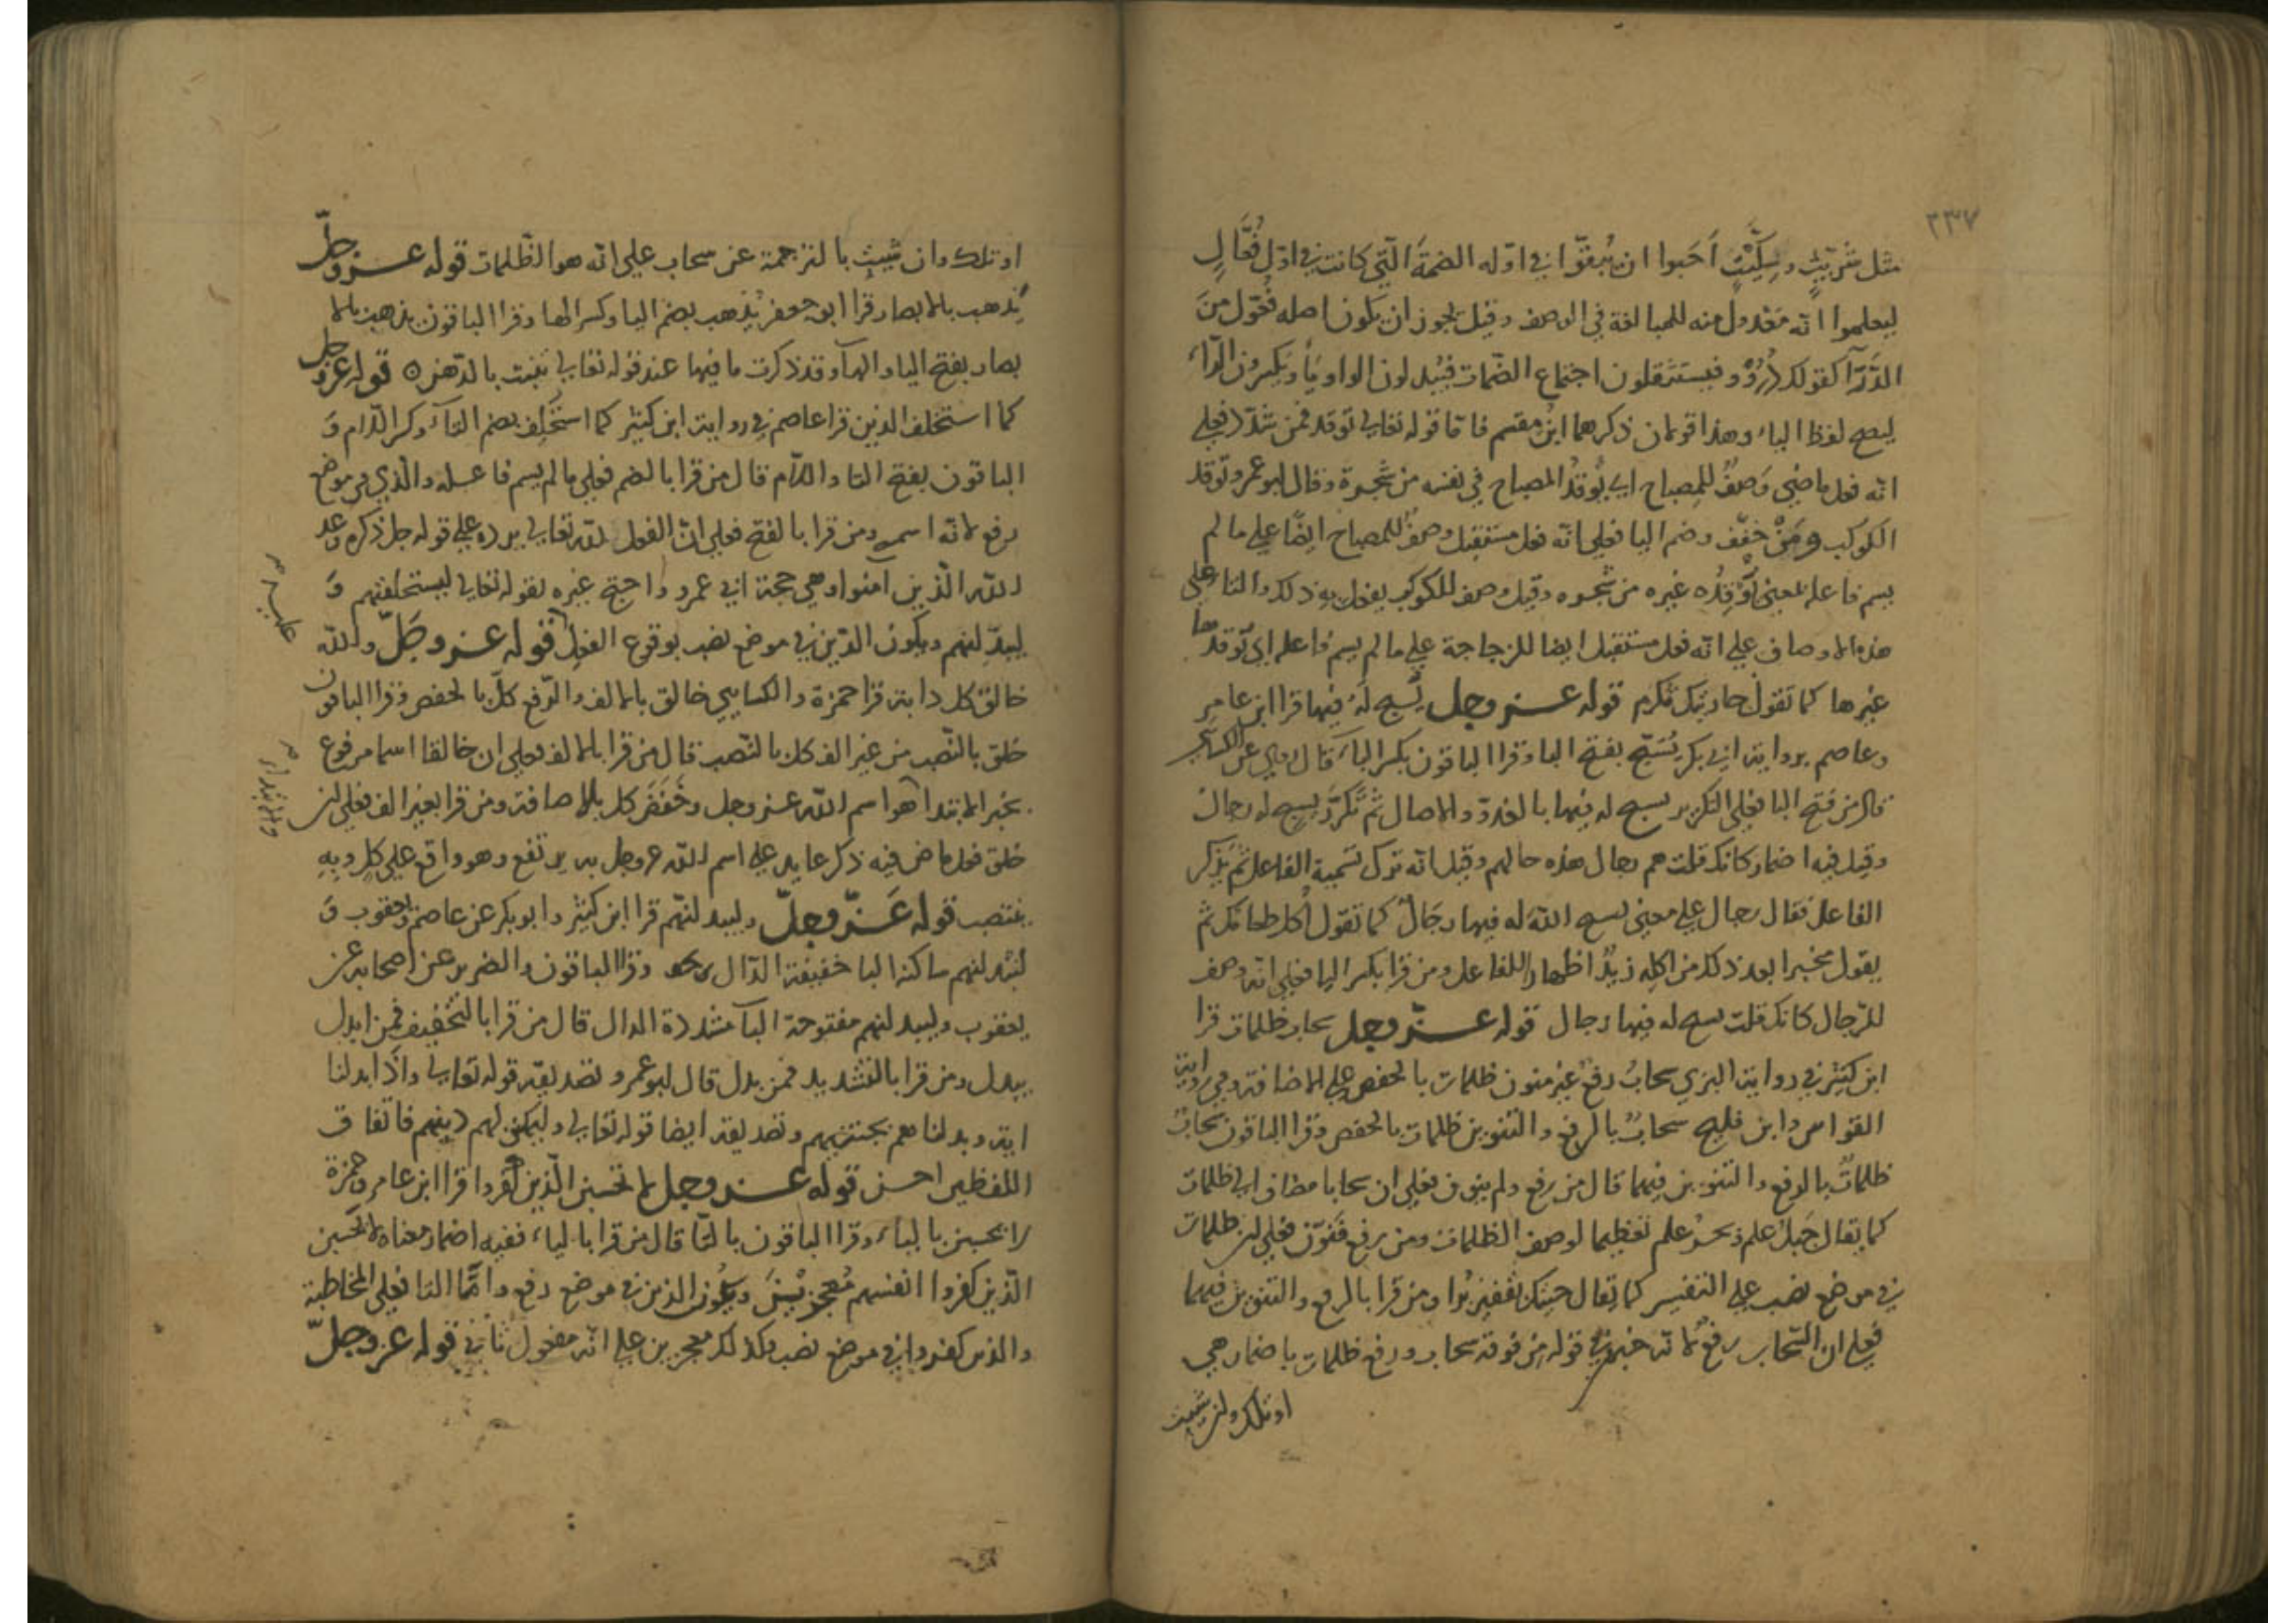 ٢٣٧
مثل شرّيبٍ وسِكّيتٍ أَحَبوا ان يُبقوّا في اوّله الضمةَ الّتي كانت في اوّل فُعَّالٍ
ليعلموا انّه مَعْدول منه للمبالغة في الوصف وقيل يجوز ان يكون اصله فُعّول منَ
الدَّرَآ كقولك دُرُّوْو فيستثقلون اجتماع الضّمات فيُبدلون الواو يَاً ويكسرون الرّاءَ
ليصح لفظ الياء وهذا قولان ذكرهما ابن مقسم فاما قوله تعالي توقد فمن شدّد فعلي
انّه فعل ماضي وَصفٌ للمصباح اي تُوقدُ المصباح في نفسه من شجرة وقال ابو عمرو توقد
الكوكب ومَنْ خفّف وضم اليا فعلي انّه فعل مستقبل وصفٌ للمصباح ايضًا علي ما لم
يسم فاعله بمعني يُوقِدُه غيره من شجره وقيل وصف للكوكب يفعل به ذلك والتا علي
هذه الاوصاف علي انّه فعل مستقبل ايضا للزجاجة علي ما لم يسم فاعله اي تُوقدها
غيرها كما تقول جاريتك تكرم قوله عــز وجل يُسبح لَهُ فيها قرا ابن عامر
وعاصم برواية ابي بكر يُسَبّح بفتح البا وقرا الباقون بكسر الباءِ قال عن الكساي
قال من فتح البا فعلي التكرير يسبح له فيها بالغدوّ والاصال ثم تكرّرَ يسبح له رجال
وقيل فيه اضمار كانك قلت هم رجال هذه حالهم وقيل انّه ترك تسمية الفاعل ثم يَذكر
الفاعل فقال رجال علي معني يسبح الله له فيها رجَالٌ كما تقول أُكل طعامك ثم
يقول مخبرا بعد ذلك من اكله زيدٌ اظهارا للفاعل ومن قرا بكسر اليا فعلي انّه وصف
للرّجال كانك قلت يسبح له فيها رجال قوله عــزّ وجل سحاب ظلمات قرا
ابن كثير في رواية البزي سحابُ رفعٌ غير منون ظلمات بالخفص علي الاضافة وفي رواية
القواس وابن فليح سحابٌ بالرفع والتنوين ظلمات بالخفص وقرا الباقون سحابٌ
ظلماتٌ بالرفع والتنوين فيهما قال من رفع ولم ينون فعلي ان سحابا مضاف الي ظلمات
كما يقال جَبلُ علم وبحرُ علم تعظيما لوصف الظلمات ومن رفع فنوّن فعلي ان ظلمات
في موضع نصب علي التفسير كما يقال حبتك بقفيز بُرا ومن قرا بالرفع والتنوين فيهما
فعلي ان السّحاب رفعٌ لانّه خبر في قوله من فوقه سحاب ورفع ظلمات باضمار هي
او تلك وان شيت
او تلك وان شيتِ بالترجمة عن سحاب علي انّه هو الظّلمات قوله عــز وجلّ
يَذهب بالابصار قرا ابو جعفر يُذهب بضم اليا وكسر الها وقرا الباقون يذهب بالا
بصار بفتح اليا والهآ وقد ذكرت ما فيها عند قوله تعالي تنبت بالدّهن ٥ قوله عز وجل
كما استخلف الذين قرا عاصم في رواية ابن كثير كما استُخلِف بضم التآءِ وكسر اللّام وَ
الباقون بفتح التا واللّام قال من قرا بالضم فعلي ما لم يسم فاعــله والّذي في موضع
رفع لانّه اسمه ومن قرا بالفتح فعلي انّ الفعل للّه تعالي يرده علي قوله جل ذكره وعد
اللّه الّذين آمنوا وهي حجة ابي عمرو واحتج غيره بقوله تعالي ليستخلفنهم وَ
ليبدّلنهم ويكون الذّين في موضع نصب بوقوع الفعل قوله عــز وجَلّ واللّه
خالق كل دابة قرا حمزة والكسايي خالق بالالف والرّفع كلّ بالخفص وقرا الباقون
خلق بالنّصب من غير الف كل بالنّصب قال من قرا بالالف فعلي ان خالقا اسما مرفوع
بخبر الابتدا هو اسم اللّه عــز وجل وخَفَضَ كل بالاضافة ومن قرا بغير الف فعلي ان
خلق فعل ماض فيه ذكر عايد علي اسم اللّه عز وجل به يرتفع وهو واقع علي كلِ وبِه
ينتصب قوله عَــزّ وجلّ وليبدلنّهم قرا ابن كثير وابو بكر عن عاصم ويعقوب وَ
ليُبْدلنهم ساكنة البا خفيفة الدّال وقرا الباقون والضرير عن اصحابه عن
يعقوب وليبدلنهم مفتوحة البآ مشددة الدال قال من قرا بالتخفيف فمن ابدل
يبدل ومن قرا بالتشديد فمن بدل قال ابو عمرو تصديقه قوله تعالي واذا بدلنا
اية وبدلناهم بجنتيهم وتصديقه ايضا قوله تعالي وليمكنن لهم دينهم فاتفاق
اللفظين احسن قوله عــز وجل لا تحسبن الّذين كفروا قرا ابن عامر وحمزة
لا يحسبن بالياءِ وقرا الباقون بالتّا قال من قرا بالياءِ ففيه اضمار معناه لا يحسبن
الّذين كفروا انفسهم مُعجزِيْنَ ويكون الذين في موضع رفع وامّا التا فعلي المخاطبة
والذين كفروا في موضع نصب وكذلك معجزين علي انّه مفعول ثاني قوله عز وجلّ